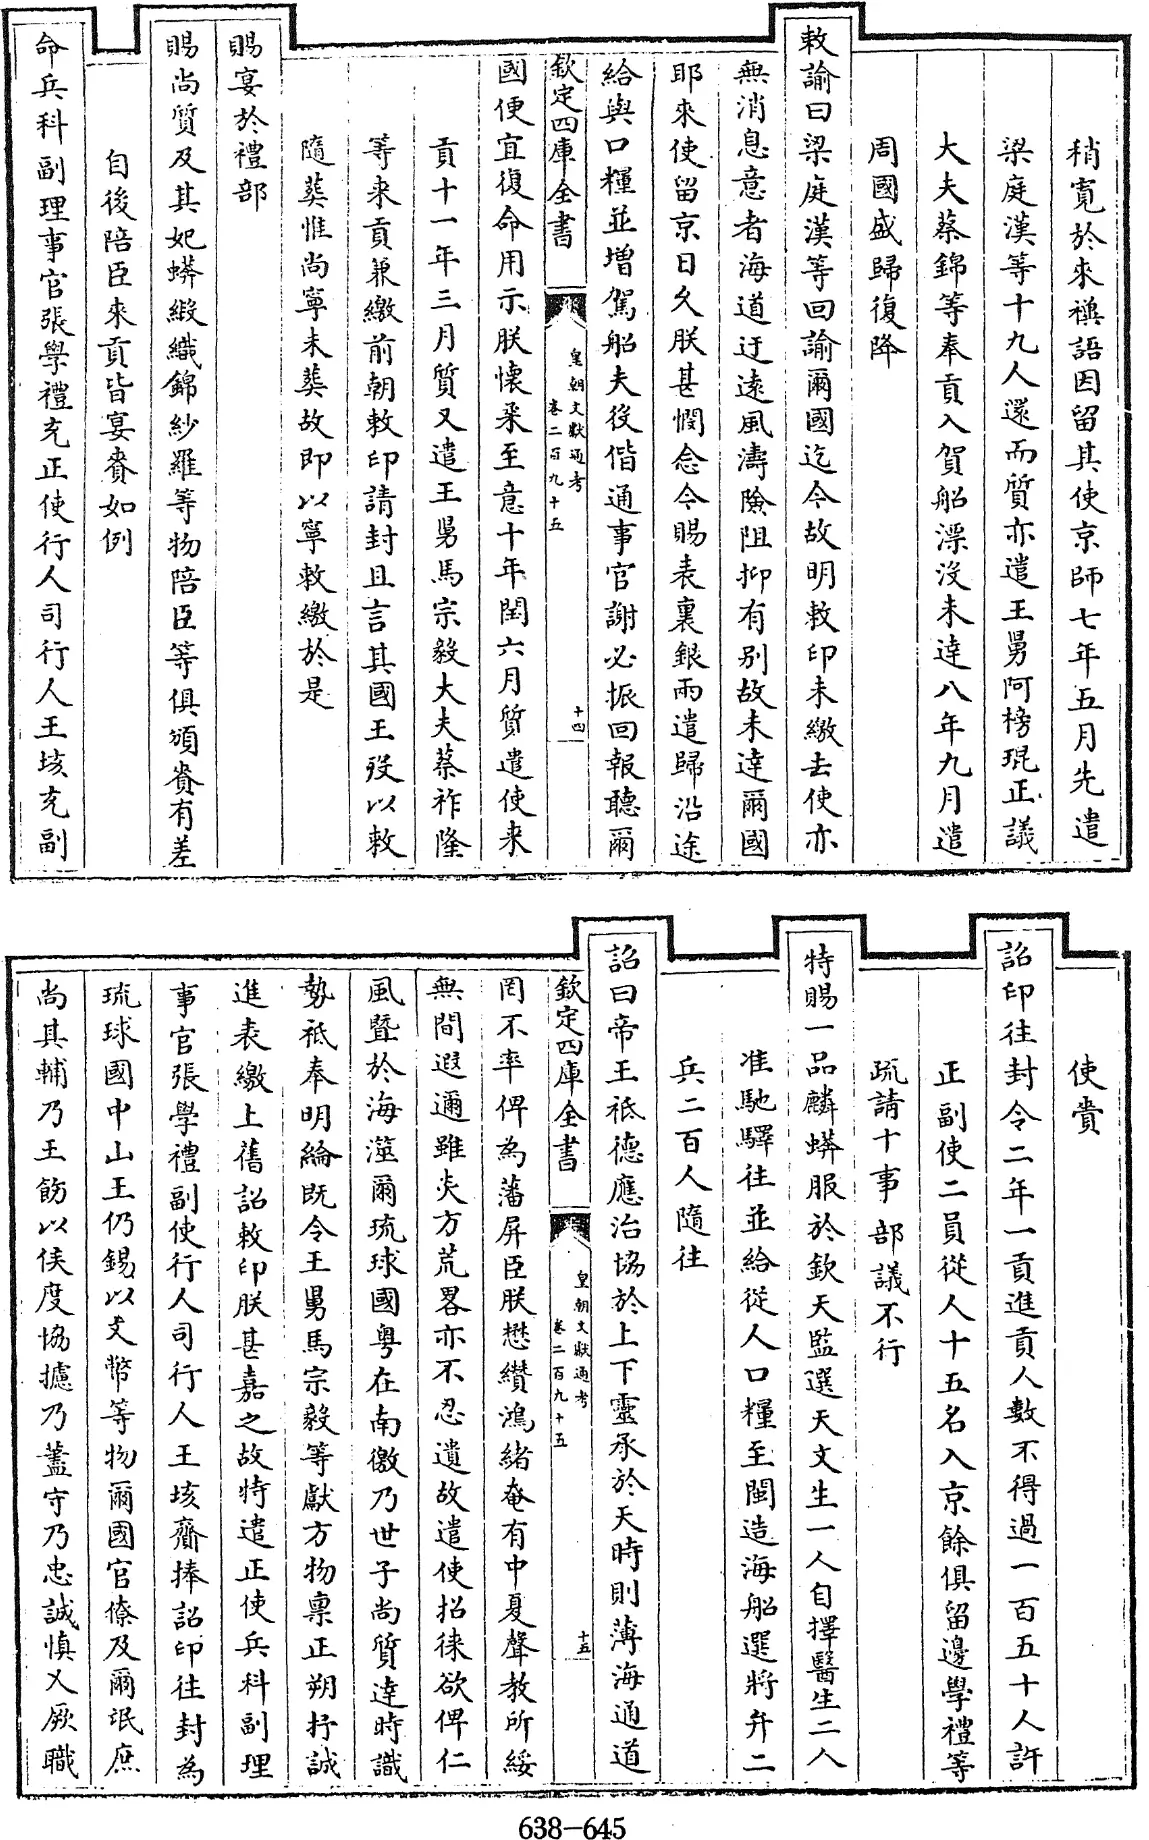 稍寬於來禠語因留其使京師七年五月先遣
梁庭漢等十九人還而質亦遣王舅阿榜琨正議
大夫蔡錦等奉貢入賀船漂沒未達八年九月遣
周國盛歸復降
敕諭曰梁庭漢等回諭爾國迄今故明敕印未繳去使亦
無消息意者海道迂遠風濤險阻抑有別故未達爾國
耶來使留京日久朕甚憫念今賜表裏銀兩遣歸沿途
給與口糧並增駕船夫役偕通事官謝必振回報聽爾
欽定四庫全書
皇朝文獻通考
卷二百九十五
十四
國便宜復命用示朕懷柔至意十年閏六月質遣使來
貢十一年三月質又遣王舅馬宗毅大夫蔡祚隆
等來貢兼繳前朝敕印請封且言其國王歿以敕
隨葬惟尚寧未葬故即以寧敕繳於是
賜宴於禮部
賜尚質及其妃蟒緞織錦紗羅等物陪臣等俱頒賚有差
自後陪臣來貢皆宴賚如例
命兵科副理事官張學禮充正使行人司行人王垓充副
使賫
詔印往封令二年一貢進貢人數不得過一百五十人許
正副使二員從人十五名入京餘俱留邊學禮等
疏請十事 部議不行
特賜一品麟蟒服於欽天監選天文生一人自擇醫生二人
准馳驛往並給從人口糧至閩造海船選將弁二
兵二百人隨往
詔曰帝王祗德應治協於上下靈承於天時則薄海通道
欽定四庫全書
皇朝文獻通考
卷二百九十五
十五
罔不率俾為藩屏臣朕懋纘鴻緒奄有中夏聲教所綏
無間遐邇雖炎方荒畧亦不忍遺故遣使招徠欲俾仁
風暨於海澨爾琉球國粵在南徼乃世子尚質達時識
勢祗奉明綸既令王舅馬宗毅等獻方物稟正朔抒誠
進表繳上舊詔敕印朕甚嘉之故特遣正使兵科副理
事官張學禮副使行人司行人王垓齎捧詔印往封為
琉球國中山王仍錫以文幣等物爾國官僚及爾氓庶
尚其輔乃王飭以侯度協攄乃藎守乃忠誠慎乂厥職
638-645